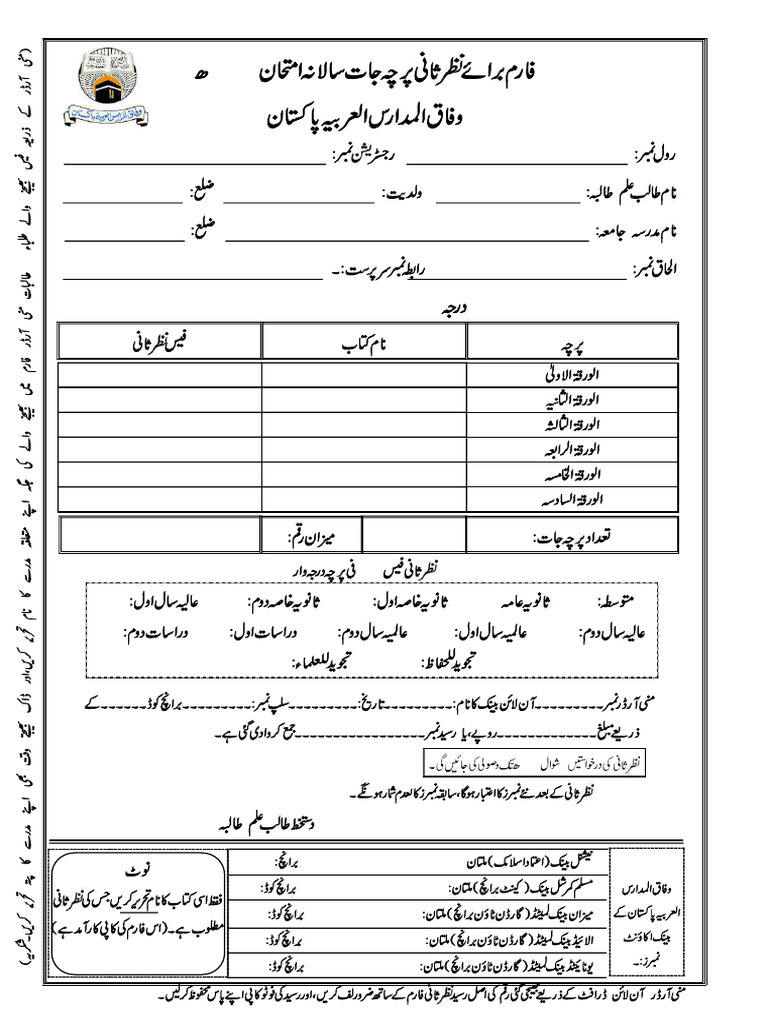 فارم برائے نظر ثانی پرچہ جات سالانہ امتحان ھ
وفاق المدارس العربیہ پاکستان
وفاق المدارس العربیہ پاکستان
رول نمبر: رجسٹریشن نمبر:
نام طالب علم طالبہ: ولدیت: ضلع:
نام مدرسہ جامعہ: ضلع:
الحاق نمبر: رابطہ نمبر سرپرست:۔
درجہ
پرچہ نام کتاب فیس نظر ثانی
الورقۃ الاولیٰ
الورقۃ الثانیہ
الورقۃ الثالثہ
الورقۃ الرابعہ
الورقۃ الخامسہ
الورقۃ السادسہ
تعداد پرچہ جات: میزان رقم:
نظر ثانی فیس فی پرچہ درجہ وار
متوسطہ: ثانویہ عامہ ثانویہ خاصہ اول: ثانویہ خاصہ دوم: عالیہ سال اول:
عالیہ سال دوم: عالمیہ سال اول: عالمیہ سال دوم: دراسات اول: دراسات دوم:
تجوید للحفاظ: تجوید للعلماء:
منی آرڈر نمبر---------آن لائن بینک کا نام:---------تاریخ:---------سلپ نمبر:---------برانچ کوڈ------کے
ذریعے مبلغ-------------روپے، یا رسید نمبر-----------------جمع کروا دی گئی ہے۔
نظر ثانی کی درخواستیں شوال ھ تک وصولی کی جائیں گی۔
نظر ثانی کے بعد نئے نمبرز کا اعتبار ہوگا، سابقہ نمبرز کالعدم شمار ہونگے۔
دستخط طالب علم طالبہ
وفاق المدارس
العربیہ پاکستان کے
بینک اکاؤنٹ
نمبرز:۔
نیشنل بینک (اعتماد اسلامک) ملتان برانچ:
مسلم کمرشل بینک (کینٹ برانچ) ملتان: برانچ کوڈ:
میزان بینک لمیٹڈ (گارڈن ٹاؤن برانچ) ملتان: برانچ کوڈ:
الائیڈ بینک لمیٹڈ (گارڈن ٹاؤن برانچ) ملتان: برانچ کوڈ:
یونائیٹڈ بینک لمیٹڈ (گارڈن ٹاؤن برانچ) ملتان: برانچ کوڈ:
نوٹ
فقط اسی کتاب کا نام تحریر کریں جس کی نظر ثانی
مطلوب ہے۔ (اس فارم کی کاپی کارآمد ہے)
منی آرڈر آن لائن ڈرافٹ کے ذریعے بھیجی گئی رقم کی اصل رسید نظر ثانی فارم کے ساتھ ضرور لف کریں، اور رسید کی فوٹو کاپی اپنے پاس محفوظ کر لیں۔
(منی آرڈر کے ذریعہ فیس بھیجنے والے طلبہ طالبات منی آرڈر فارم میں بھیجنے والے کی جگہ اپنے متعلقہ مدرسے کا نام تحریر کریں، اور ڈاک بھیجتے وقت بھی اپنے مدرسے کا پتہ تحریر کریں۔ شکریہ)